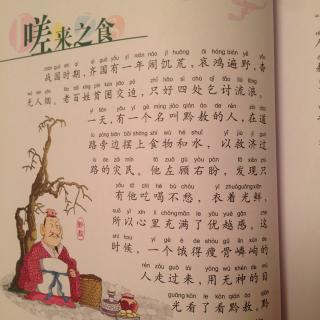 嗟来之食
zhàn guó shí qī qí guó yǒu yì nián nào jī huāng āi hóng biàn yě
战国时期，齐国有一年闹饥荒，哀鸿遍野，杳
wú rén yān lǎo bǎi xìng pín kùn jiāo pò zhǐ hǎo sì chù qǐ tǎo liú làng
无人烟，老百姓贫困交迫，只好四处乞讨流浪。
yì tiān yǒu yí gè míng jiào qián áo de rén zài dào
一天，有一个名叫黔敖的人，在道
lù páng biān bǎi shàng shí wù hé shuǐ yǐ jiù jì guò
路旁边摆上食物和水，以救济过
lù de zāi mín tā zuǒ gù yòu pàn fā xiàn zhǐ
路的灾民。他左顾右盼，发现只
yǒu tā chī hē bù chóu yī zhuó guāng xiān
有他吃喝不愁，衣着光鲜，
suǒ yǐ xīn lǐ chōng mǎn le yōu yuè gǎn zhè
所以心里充满了优越感，这
shí hou yí gè è de shòu gǔ lín xún de
时候，一个饿得瘦骨嶙峋的
rén zǒu guò lái yòng wú shén de mù
人走过来，用无神的目
guāng kàn le kàn qián áo qián
光看了看黔敖，黔
黔敖